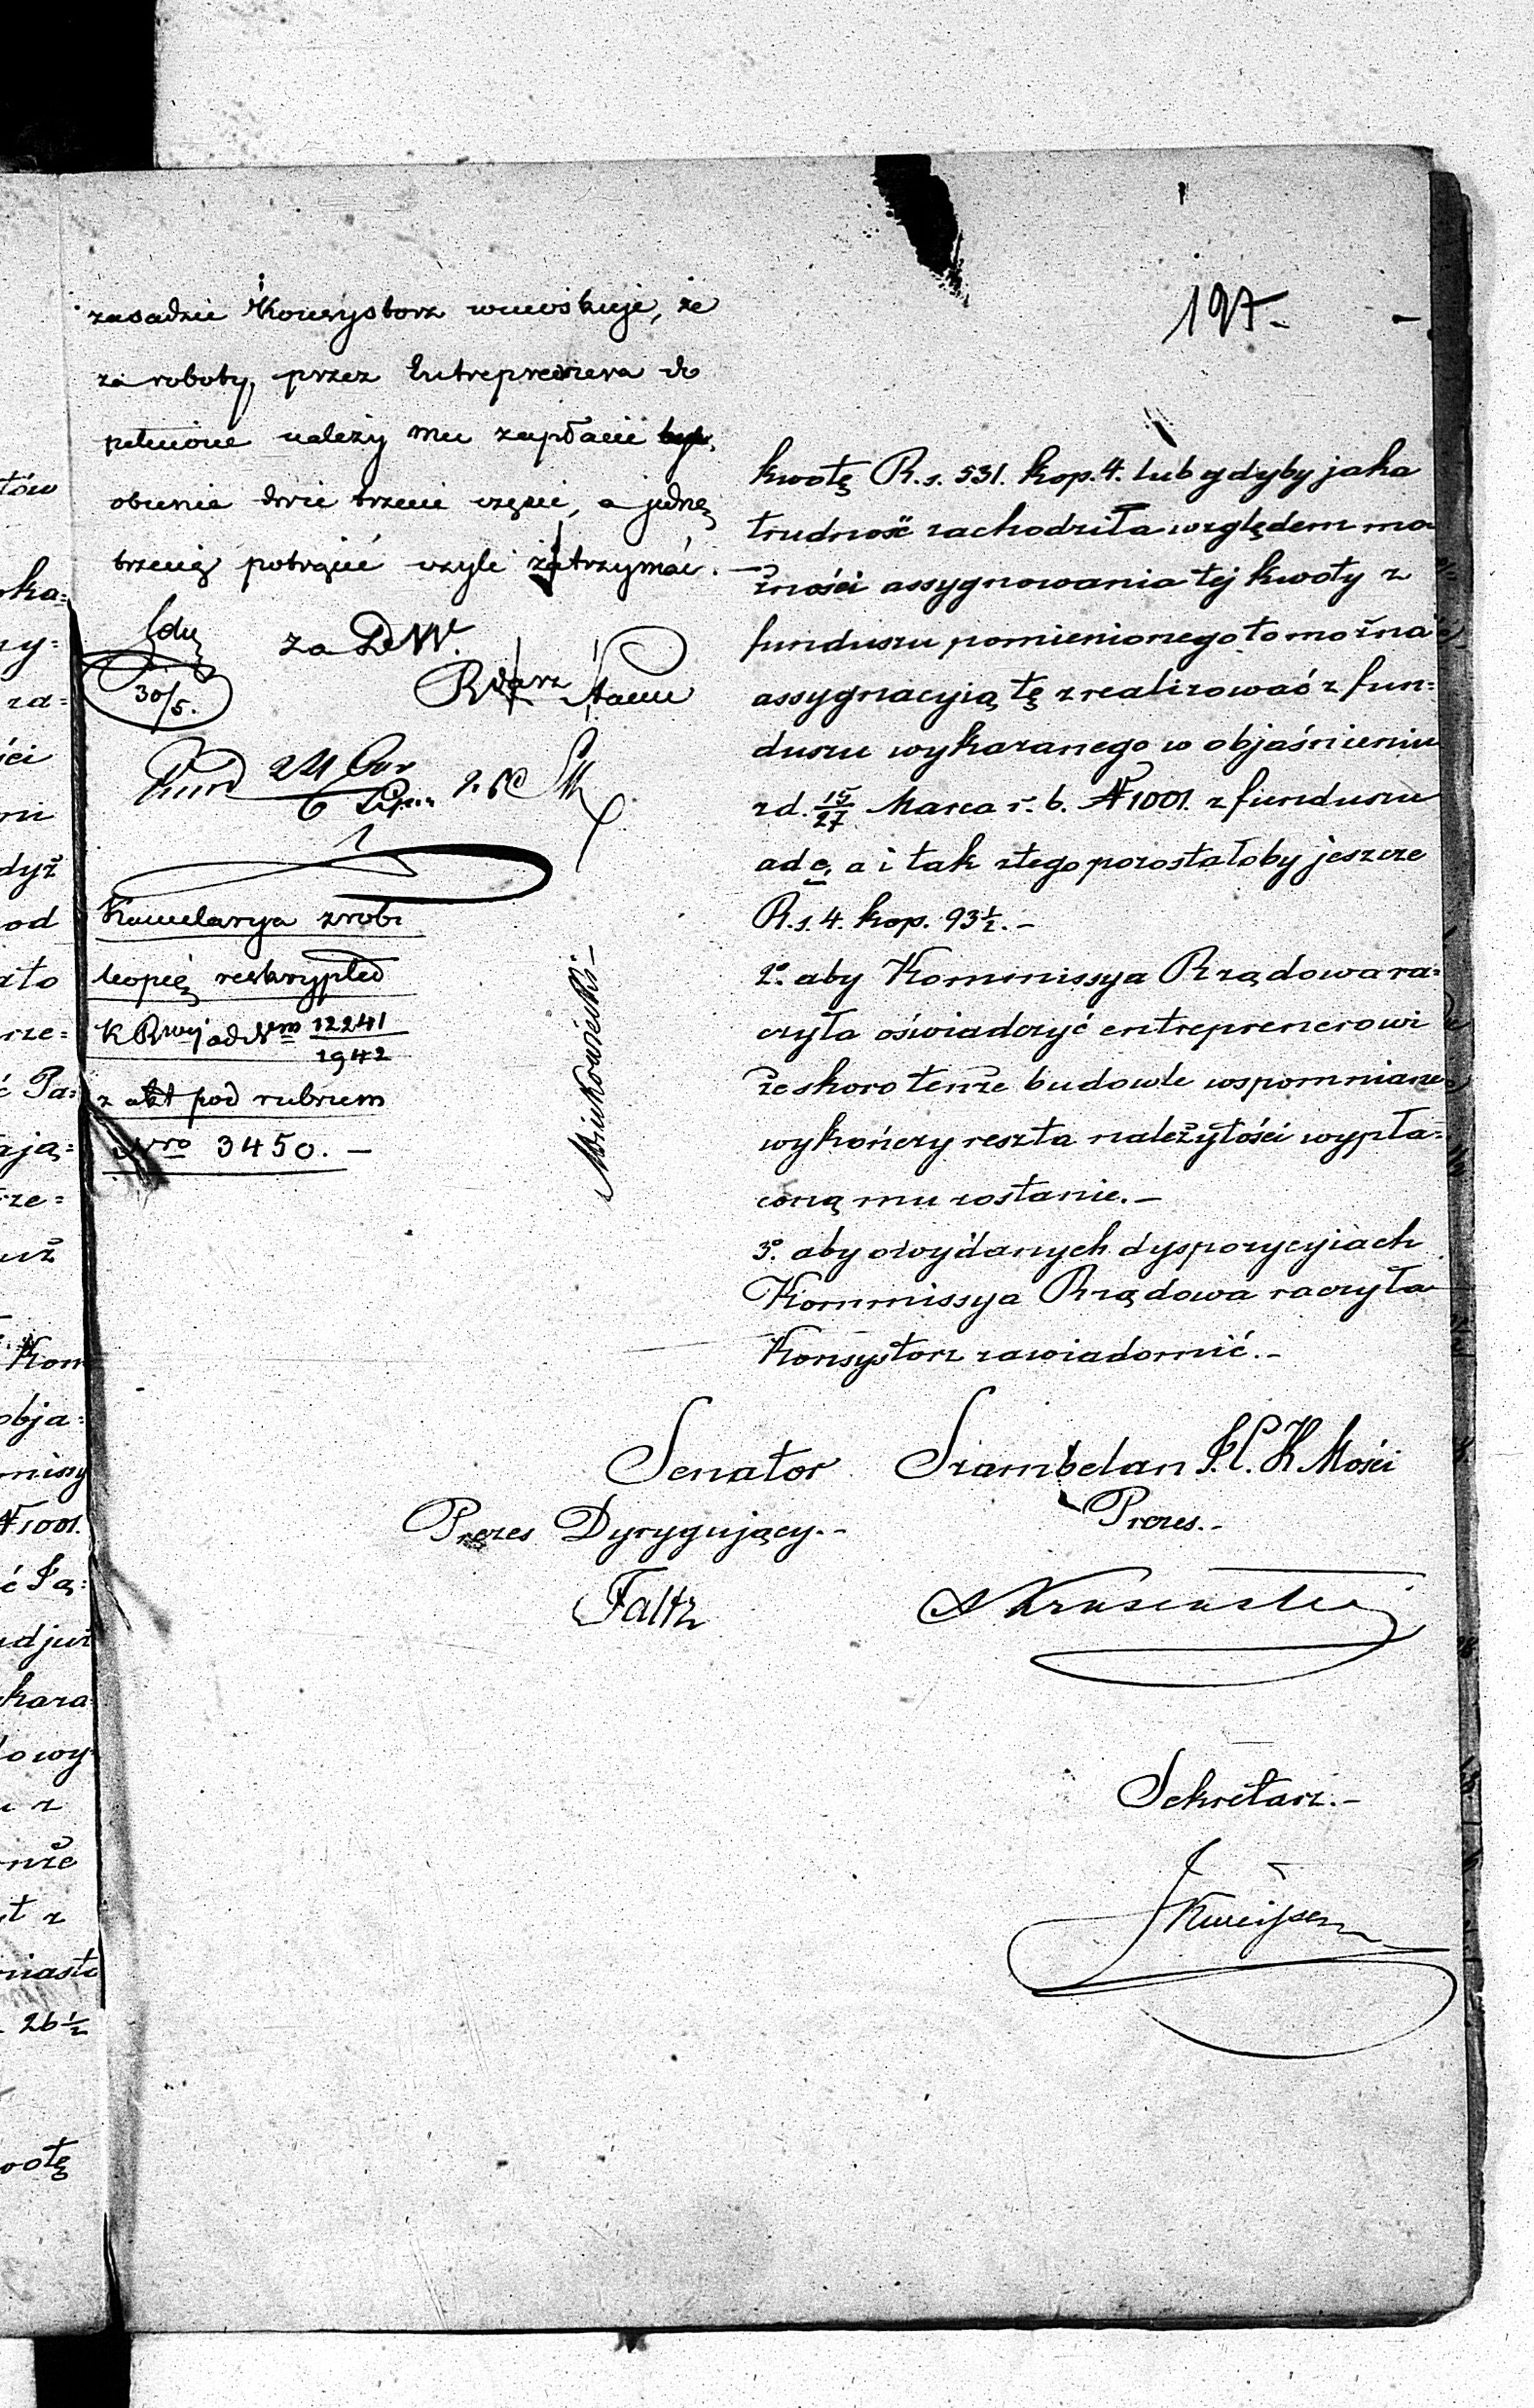 197.
zasadzie Konsystorz wnioskuje, że
za roboty, przez Entreprenera do
pełnione należy mu zapłacić
obecnie dwie trzecie części, a jednę
trzecią potrącić czyli zatrzymać.
za D W.
Rdarz Stanu
30/5.
Kancelarya zrobi
kopię reskryptu
K R wej ad Nem 12241/1942
z akt pod rubrum
Nro 3450. —
kwotę R.s. 531. kop. 4. lub gdyby jaka
trudność zachodziła względem mo
żności assygnowania tej kwoty z
funduszu pomienionego to można
assygnacyią tę zrealizować z fun=
duszu wykazanego w objaśnieniu
z d. 15/27 Marca r. b. N 1001. z funduszu
ad c, a i tak z tego pozostałoby jeszcze
R.s. 4. kop. 93½. –
2º. aby Kommissya Rządowa ra=
czyła oświadczyć entreprenerowi
że skoro tenże budowle wspomniane
wykończy reszta należytości wypła=
coną mu zostanie. –
3º. aby o wydanych dyspozycyiach
Kommissya Rządowa raczyła
Konsystorz zawiadomić. –
Senator Szambelan J. C. K Mości
Prezes Dyrygujący. – Prezes. –
Faltz A Krusenstern
Sekretarz. –